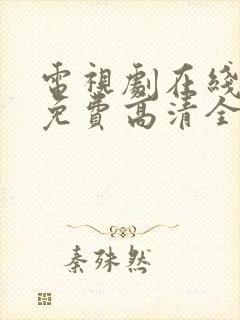 電視劇在綫
免費高清全
秦殊然